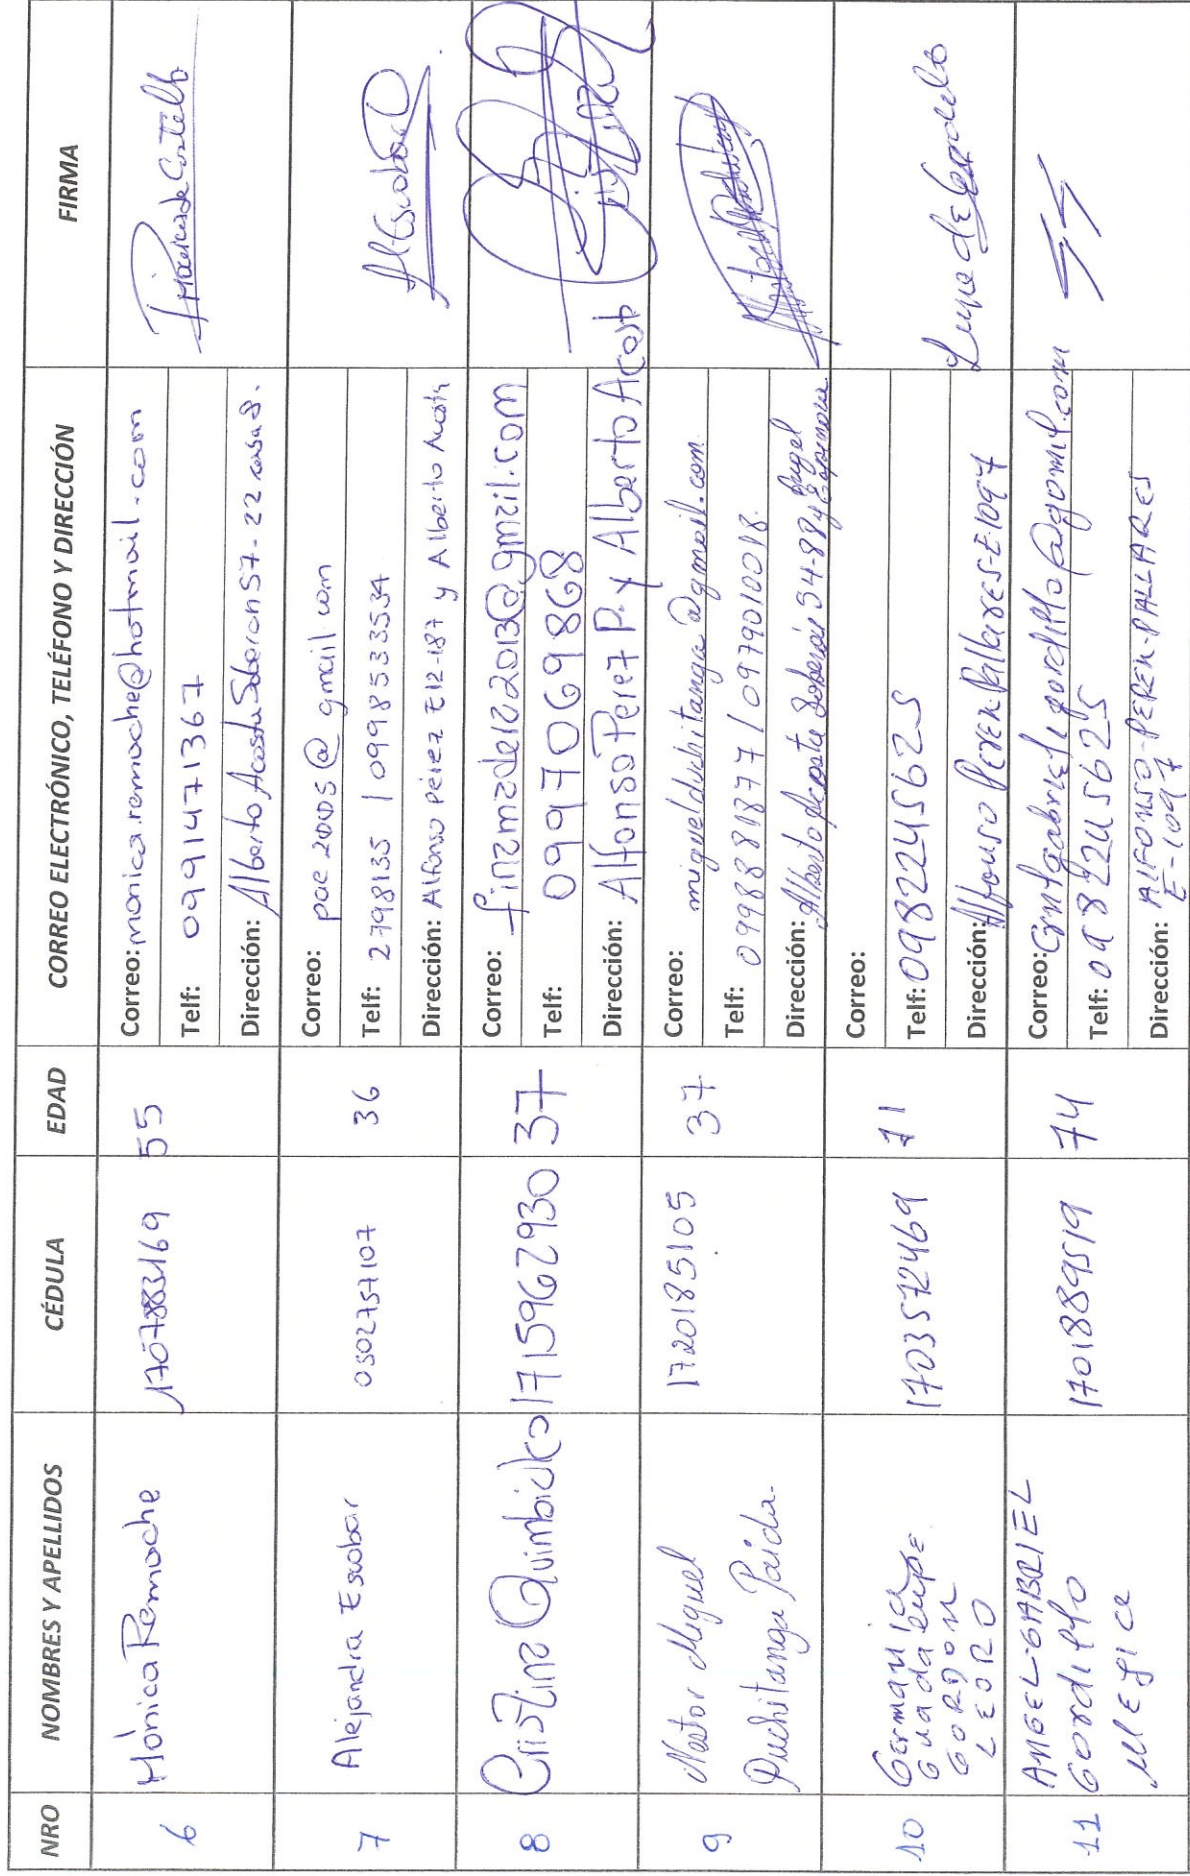 NRO NOMBRES Y APELLIDOS CÉDULA EDAD CORREO ELECTRÓNICO, TELÉFONO Y DIRECCIÓN FIRMA
6 Mónica Remache 1707883169 55
Correo: monica.remache@hotmail.com
Telf: 0991471367
Dirección: Alberto Acosta Soberon 57-22 casa 8.
7 Alejandra Escobar 0502757107 36
Correo: pae2005@gmail.com
Telf: 2798135 / 0998533534
Dirección: Alfonso Pérez E12-187 y Alberto Acosta
AEscobar
8 Cristina Quimbiulco 1715962930 37
Correo: finamadel22013@gmail.com
Telf: 0997069868
Dirección: Alfonso Perez P. y Alberto Acosta
9 Nestor Miguel
Duchitanga Paida. 1720185105 37
Correo: miguelduchitanga@gmail.com
Telf: 0998881877 / 0979010018.
Dirección: Alberto Acosta Soberón 54-88 y Angel Espinoza
10 Germania
Guadalupe
GORDON
LEORO 1703572469 71
Correo:
Telf: 0982245625
Dirección: Alfonso Perez Pallares-E1097
Lupe de Gordillo
11 ANGEL-GABRIEL
Gordillo
MEJICA 1701889519 74
Correo: @gmil.com
Telf: 0982245625
Dirección: AlFONSO-PEREZ-PALLARES
E-1097